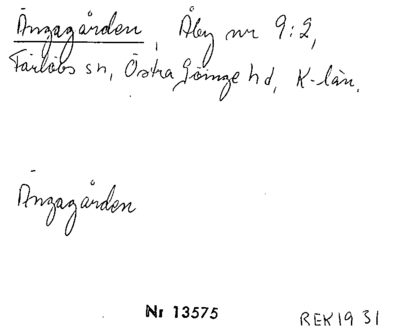 Ängagården, Åby nr 9:2,
Färlövs sn, Östra Göinge hd, K-län.
Ängagården
Nr 13575
REK 19 31